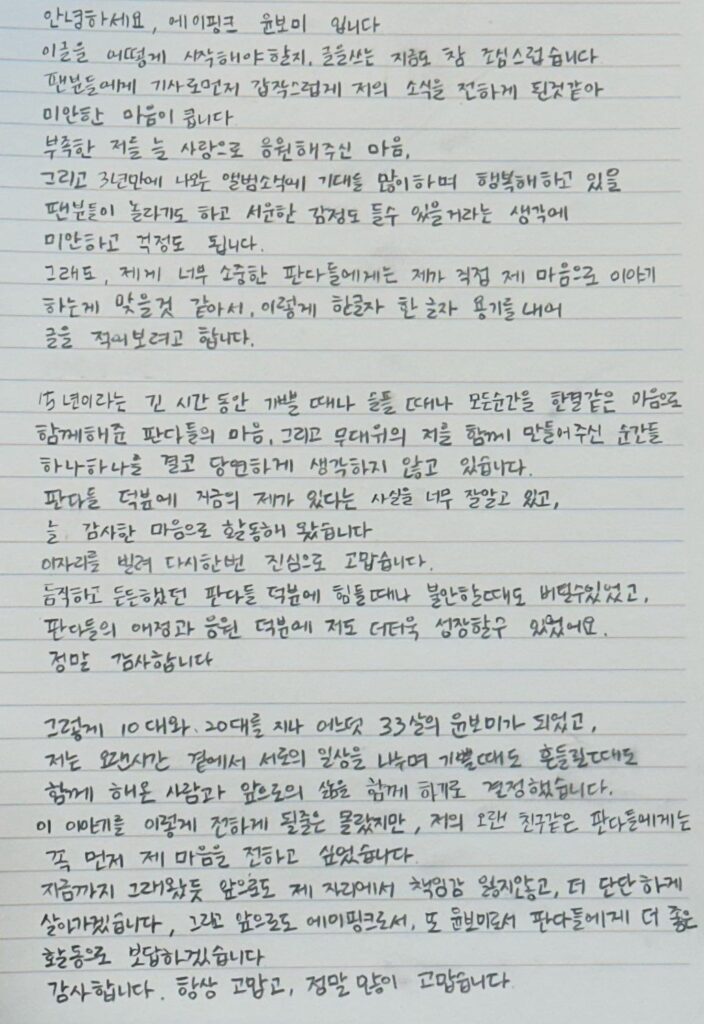 안녕하세요, 에이핑크 윤보미 입니다
이글을 어떻게 시작해야할지, 글을쓰는 지금도 참 조심스럽습니다
팬분들에게 기사로먼저 갑작스럽게 저의 소식을 전하게 된것같아
미안한 마음이 큽니다
부족한 저를 늘 사랑으로 응원해주신 마음,
그리고 3년만에 나오는 앨범소식에 기대를 많이하며 행복해하고 있을
팬분들이 놀라기도 하고 서운한 감정도 들수 있을거라는 생각에
미안하고 걱정도 됩니다.
그래도, 제게 너무 소중한 판다들에게는 제가 직접 제 마음으로 이야기
하는게 맞을것 같아서, 이렇게 한글자 한 글자 용기를 내어
글을 적어보려고 합니다.
15년이라는 긴 시간 동안 기쁠 때나 슬플 때나 모든순간을 한결같은 마음으로
함께해준 판다들의 마음, 그리고 무대위의 저를 함께 만들어주신 순간들
하나하나를 결코 당연하게 생각하지 않고 있습니다.
판다들 덕분에 지금의 제가 있다는 사실을 너무 잘알고 있고,
늘 감사한 마음으로 활동해 왔습니다
이자리를 빌려 다시한번 진심으로 고맙습니다.
듬직하고 든든했던 판다들 덕분에 힘들때나 불안할때도 버틸수있었고,
판다들의 애정과 응원 덕분에 저도 더더욱 성장할수 있었어요.
정말 감사합니다
그렇게 10대와 20대를 지나 어느덧 33살의 윤보미가 되었고,
저는 오랜시간 곁에서 서로의 일상을 나누며 기쁠때도 흔들릴때도
함께 해온 사람과 앞으로의 삶을 함께 하기로 결정했습니다.
이 이야기를 이렇게 전하게 될줄은 몰랐지만, 저의 오랜 친구같은 판다들에게는
꼭 먼저 제 마음을 전하고 싶었습니다.
지금까지 그래왔듯 앞으로도 제 자리에서 책임감 잃지않고, 더 단단하게
살아가겠습니다, 그리고 앞으로도 에이핑크로서, 또 윤보미로서 판다들에게 더 좋은
활동으로 보답하겠습니다
감사합니다. 항상 고맙고, 정말 많이 고맙습니다.